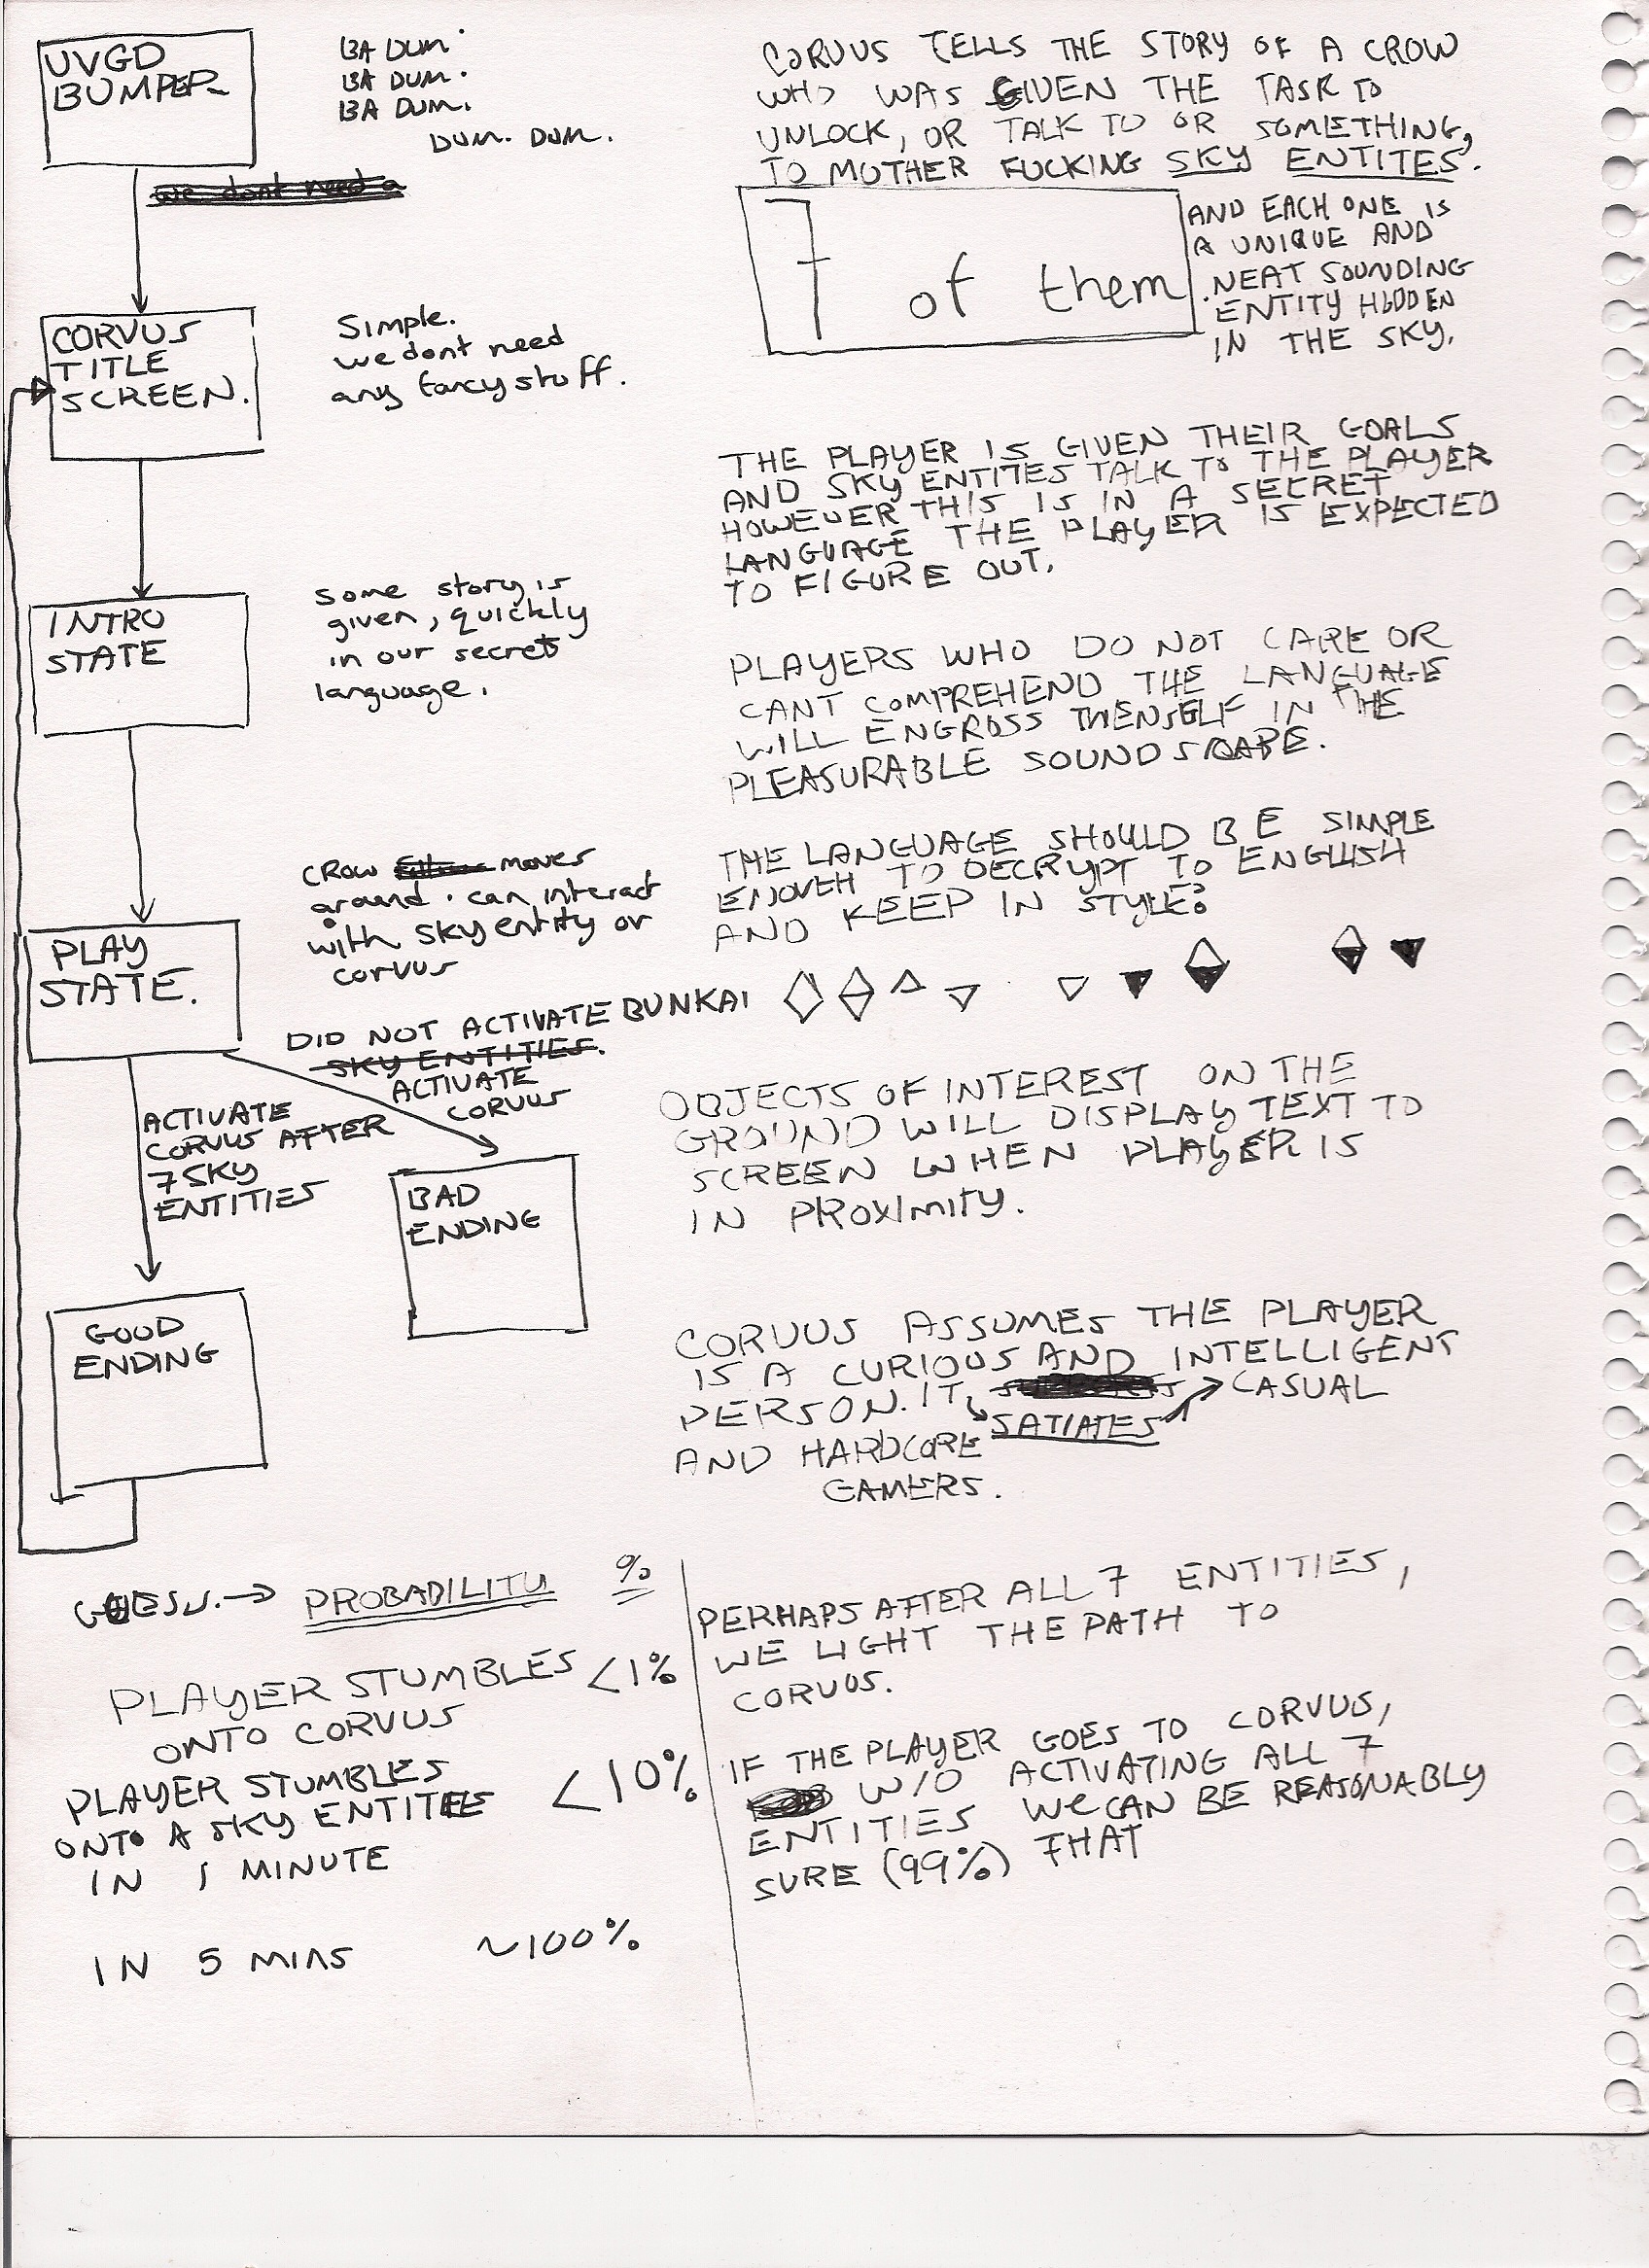 UVGD
BUMPER
BA DUM.
BA DUM.
BA DUM.
DUM. DUM.
we dont need a
CORVUS
TITLE
SCREEN.
Simple.
we dont need
any fancy stuff.
INTRO
STATE
some story is
given, quickly
in our secret
language.
PLAY
STATE.
CROW moves
around. can interact
with sky entity or
corvus
DID NOT ACTIVATE BUNKAI
SKY ENTITIES.
ACTIVATE
CORVUS
ACTIVATE
CORVUS AFTER
7 SKY
ENTITIES
BAD
ENDING
GOOD
ENDING
CORVUS TELLS THE STORY OF A CROW
WHO WAS GIVEN THE TASK TO
UNLOCK, OR TALK TO OR SOMETHING,
TO MOTHER FUCKING SKY ENTITES.
7 of them
AND EACH ONE IS
A UNIQUE AND
NEAT SOUNDING
ENTITY HIDDEN
IN THE SKY.
THE PLAYER IS GIVEN THEIR GOALS
AND SKY ENTITES TALK TO THE PLAYER
HOWEVER THIS IS IN A SECRET
LANGUAGE THE PLAYER IS EXPECTED
TO FIGURE OUT.
PLAYERS WHO DO NOT CARE OR
CANT COMPREHEND THE LANGUAGE
WILL ENGROSS THEMSELF IN THE
PLEASURABLE SOUNDSCAPE.
THE LANGUAGE SHOULD BE SIMPLE
ENOUGH TO DECRYPT TO ENGLISH
AND KEEP IN STYLE:
OBJECTS OF INTEREST ON THE
GROUND WILL DISPLAY TEXT TO
SCREEN WHEN PLAYER IS
IN PROXIMITY.
CORVUS ASSUMES THE PLAYER
IS A CURIOUS AND INTELLIGENT
PERSON. IT SATIATES CASUAL
AND HARDCORE
GAMERS.
PROBABILITY %
PLAYER STUMBLES <1%
ONTO CORVUS
PLAYER STUMBLES <10%
ONTO A SKY ENTITIE
IN 1 MINUTE
IN 5 MINS ~100%
PERHAPS AFTER ALL 7 ENTITIES,
WE LIGHT THE PATH TO
CORVUS.
IF THE PLAYER GOES TO CORVUS,
W/O ACTIVATING ALL 7
ENTITIES WE CAN BE REASONABLY
SURE (99%) THAT